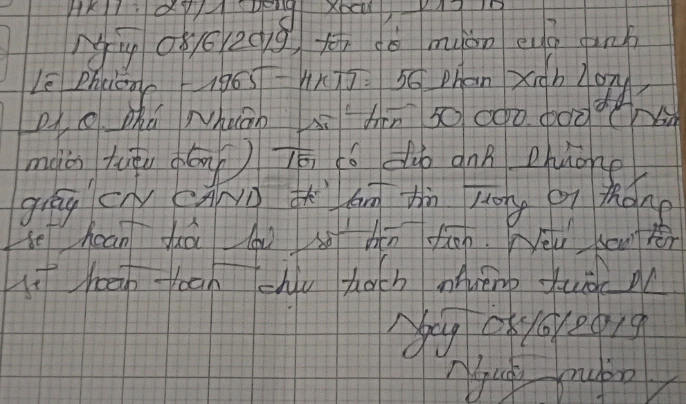 HKTT: 247/1 Đồng Xoài, P13 TB
Ngày 08/6/2019, tôi có mượn của anh
Lê Phương - 1965 - HKTT: 56 Phan Xích Long,
P1, Q. Phú Nhuận số tiền 50.000.000đ (Năm
mươi triệu đồng) Tôi có đưa anh Phương
giấy CN CAND để làm tin Trong 01 tháng
sẽ hoàn trả lại số tiền trên. Nếu sai tôi
sẽ hoàn toàn chịu trách nhiệm trước PL
Ngày 08/6/2019
Người mượn